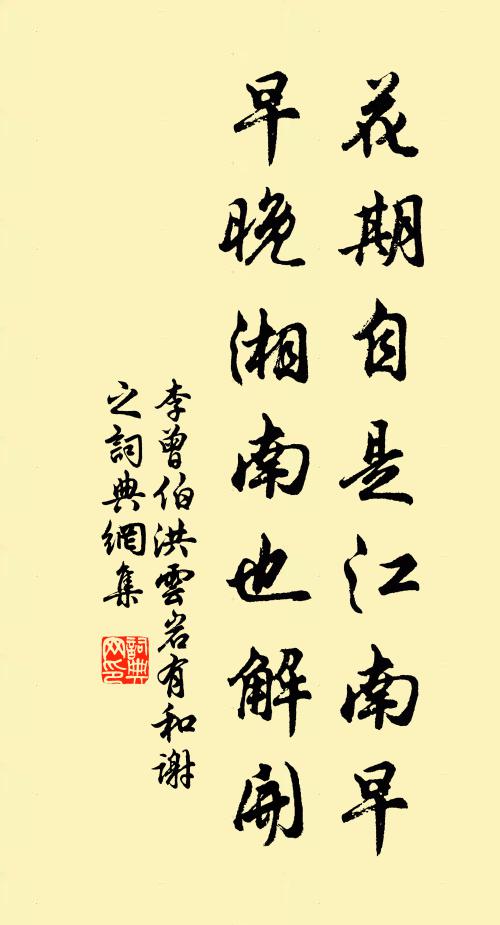 花期自是江南早
早晚湘南也解開
李曾伯洪雲岩有和謝
之詞典網集
詞典網印